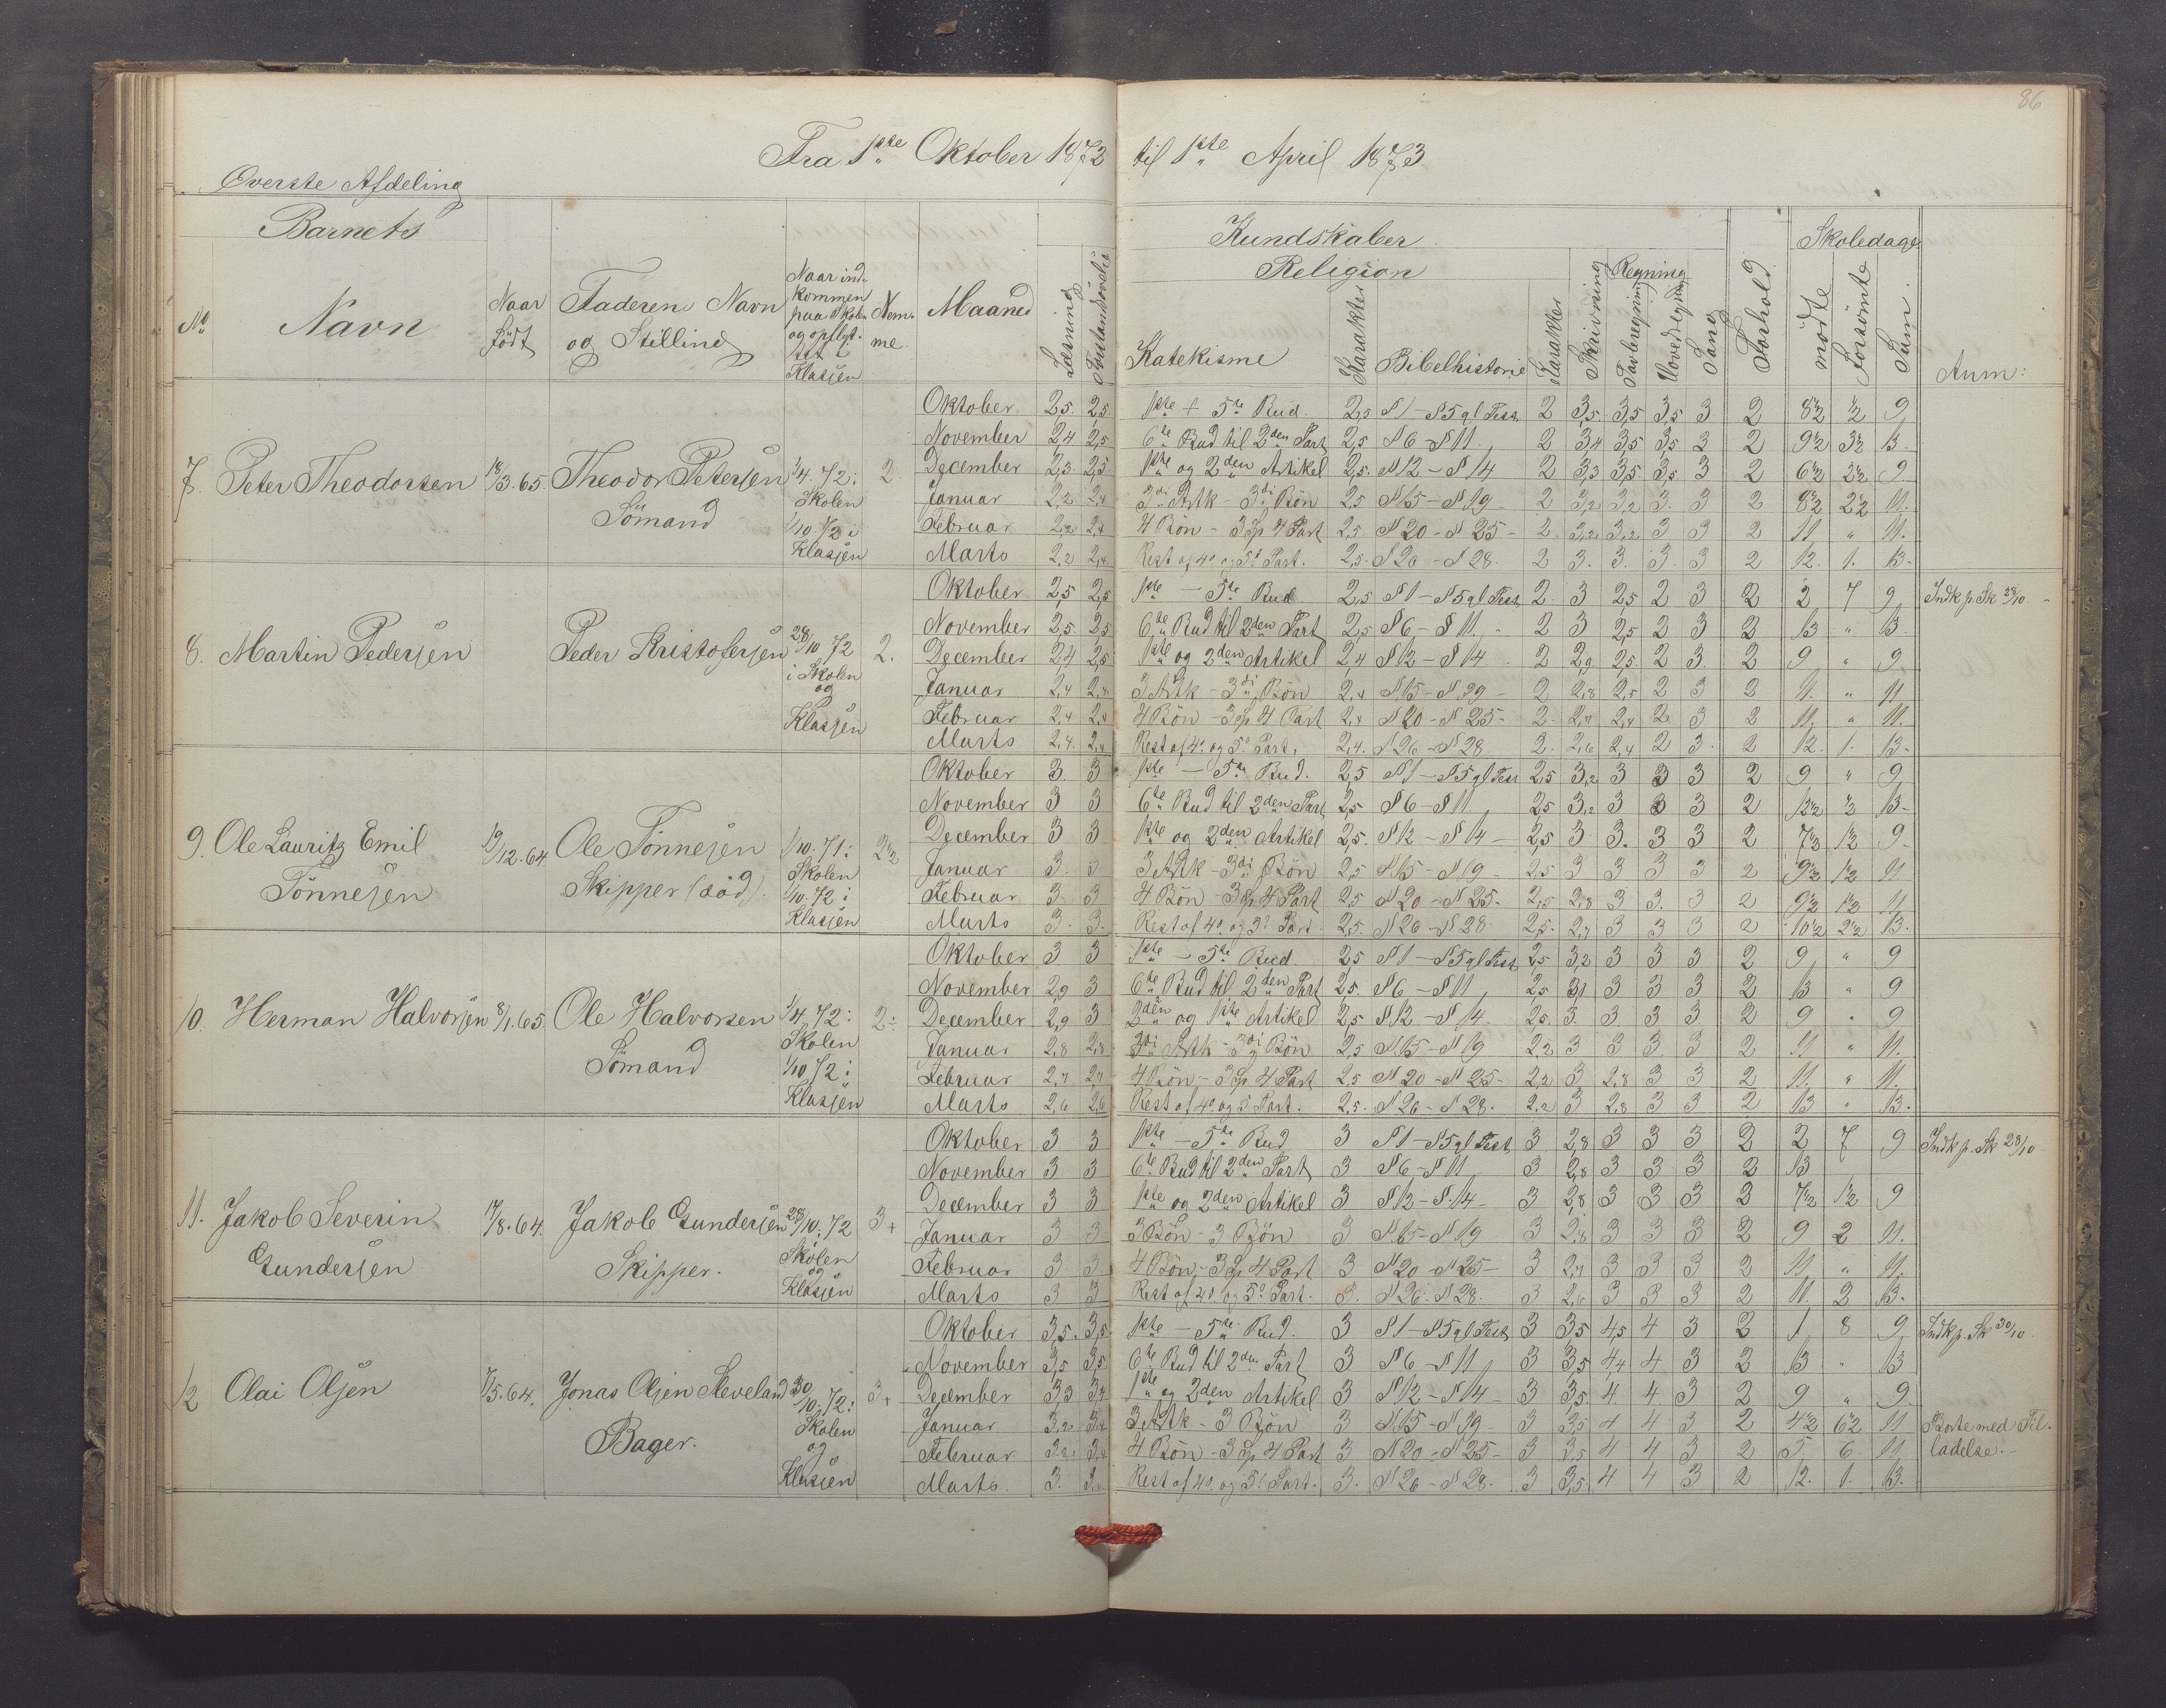 86
Fra 1ste Oktober 1872 til 1ste April 1873
Överste Afdeling
Barnets
Kundskaber
Skoledage
Religion
Regning
No
Navn
Naar Födt
Faderens Navn og Stilling
Naar ind-
kommen
paa Skolen
og opflyt-
tet i
Klassen
Nem-
me.
Maaned
Læsning
Forstandsövelse
Katekisme
Karakter
Bibelhistorie
Karakter
Skrivning
Tavleregning
Hovedregning
Sang
Forhold
mödte
Forsömte
Sum.
Anm:
7. Peter Theodorsen 18/3.65. Theodor Petersen Sömand 1/4.72 i Skolen 1/10.72 i Klassen 2.
Oktober 2,5. 2,5. 1ste + 5te Bud. 2,5 § 1 - § 5 gl Test. 2 3,5. 3,5 3,5 3 2 8½ ½ 9
November 2,4 2,5 6te Bud til 2den Part 2,5 § 6 - § 11. 2 3,4 3,5 3,5 3 2 9½ 3½ 13
December 2,3. 2,5. 1ste og 2den Artikel 2,5. § 12 - § 14 2 3,3 3,5. 3,5 3 2 6½ 2½ 9
Januar 2,2. 2,4 3di Artk - 3di Bön 2,5 § 15 - § 19 - 2 3,2 3,2 3. 3 2 8½ 2½ 11.
Februar 2,2 2,4 4 Bön - 3 Sp 4 Part 2,5. § 20 - § 25 - 2. 3,2 3,2 3 3 2 11 " 11.
Marts 2,2 2,4 Rest af 4o og 5o Part. 2,5. § 26 - § 28. 2 3. 3. 3. 3 2 12. 1. 13.
8. Martin Pedersen Peder Kristofersen 28/10 72 i Skolen og Klassen 2.
Oktober 2,5 2,5 1ste - 5te Bud 2,5 § 1 - § 5 gl Test 2 3 2,5 2 3 2 2 7 9 Indk p. Sk 28/10.
November 2,5. 2,5 6te Bud til 2den Part 2,5 § 6 - § 11. 2 3 2,5 2 3 2 13 " 13
December 2,4 2,5 1ste og 2den Artikel 2,4 § 12 - § 14 2 2,9 2,5. 2 3. 2 9 " 9
Januar 2,4 2,4 3 Artk - 3di Bön 2,4 § 15 - § 19 - 2 2,8 2,5 2 3 2 11. " 11
Februar 2,4 2,4 4 Bön - 3 Sp 4 Part 2,4 § 20 - § 25 - 2. 2,7 2,4 2 3 2 11, " 11.
Marts 2,4. 2,4 Rest af 4o og 5o Part. 2,4. § 26 - § 28. 2. 2,6 2,4 2 3. 2 12. 1. 13.
9. Ole Lauritz Emil Tönnesen 19/12.64 Ole Tönnesen Skipper (död). 1/10.71 i Skolen 1/10.72 i Klassen 2½
Oktober 3. 3 1ste - 5te Bud. 2,5 § 1 - § 5 gl Test 2,5 3,2 3 3 3 2 9 " 9
November 3 3 6te Bud til 2den Part 2,5 § 6 - § 11 2,5 3,2 3 3 3 2 12½ ½ 13
December 3 3 1ste og 2den Artikel 2,5. § 12 - § 14 - 2,5 3 3. 3 3 2 7½ 1½ 9
Januar 3. 3 3 Artk - 3di Bön 2,5 § 15 - § 19 - 2,5 3 3 3 3 2 9½ 1½ 11
Februar 3 3 4 Bön - 3 Sp 4 Part 2,5 § 20 - § 25 - 2,5 2,8 3 3. 3 2 9½ 1½ 11
Marts 3. 3. Rest af 4o og 5o Part. 2,5. § 26 - § 28 2,5. 2,7 3 3 3 2 10½ 2½ 13.
10. Herman Halvorsen 8/1.65. Ole Halvorsen Sömand 1/4.72 i Skolen 1/10 72 i Klassen 2÷
Oktober 3 3 1ste - 5te Bud. 2,5 § 1 - § 5 gl Test 2,5 3,2 3 3 3 2 9 " 9
November 2,9 3 6te Bud til 2den Part 2,5. § 6 - § 11 2,5 3,1 3 3 3 2 13 " 9
December 2,9 3 2den og 1ste Artikel 2,5 § 12 - § 14. 2,5. 3. 3 3 3 2 9 " 9
Januar 2,8 2,8 3di Artk - 3di Bön 2,5 § 15 - § 19 2,2 3 3 3. 3 2 11 " 11.
Februar 2,7 2,7 4 Bön - 3 Sp 4 Part 2,5 § 20 - § 25 - 2,2 3 2,8 3 3 2 11. " 11.
Marts 2,6 2,6 Rest af 4o og 5 Part. 2,5. § 26 - § 28. 2,2 3 2,8 3 3 2 13 " 13.
11. Jakob Severin Gundersen 17/8.64. Jakob Gundersen Skipper. 28/10.72 i Skolen og Klassen 3+
Oktober 3 3 1ste - 5te Bud 3 § 1 - § 5 gl Test 3 2,8 3 3 3 2 2 7 9 Indk p. Sk 28/10
November 3 3 6te Bud til 2den Part 3 § 6 - § 11 3 2,8 3 3 3 2 13
December 3 3 1ste og 2den Artikel 3 § 12 - § 14 3 2,8 3 3 3 2 7½ 1½ 9
Januar 3 3 3 Bön - 3 Bön 3 § 15 - § 19 3 2,8 3 3 3 2 9 2 11.
Februar 3 3 4 Bön - 3 Sp 4 Part 3 § 20 - § 25 - 3 2,7 3 3 3 2 11 " 11.
Marts 3 3 Rest af 4o og 5o Part. 3. § 26 - § 28. 3 2,6 3 3 3 2 11. 2 13.
12 Olai Olsen 7/5.64. Jonas Olsen Steveland Bager. 30/10.72 i Skolen og Klassen 3+
Oktober 3,5. 3,5. 1ste - 5te Bud. 3 § 1 - § 5 gl Test 3 3,5 4,5 4 3 2 1 8 9 Indk p. Sk 30/10
November 3,5 3,5 6te Bud til 2den Part 3 § 6 - § 11 3 3,5 4,4 4 3 2 13 " 13
December 3,3 1ste og 2den Artikel 3 § 12 - § 14 - 3 3,5. 4. 4 3 2 9 " 9
Januar 3,2 3 Artk - 3 Bön 3 § 15 - § 19 3 3,5 4 4 3 2 4½ 6½ 11 Borte med Til-
Februar 3,2 4 Bön - 3 Sp 4 Part 3 § 20 - § 25 - 3 3,5 4 4 3 2 5. 6 11 ladelse.
Marts. 3. Rest af 4o og 5o Part. 3. § 26 - § 28. 3 3,5 4. 4 3 2 12. 1. 13.